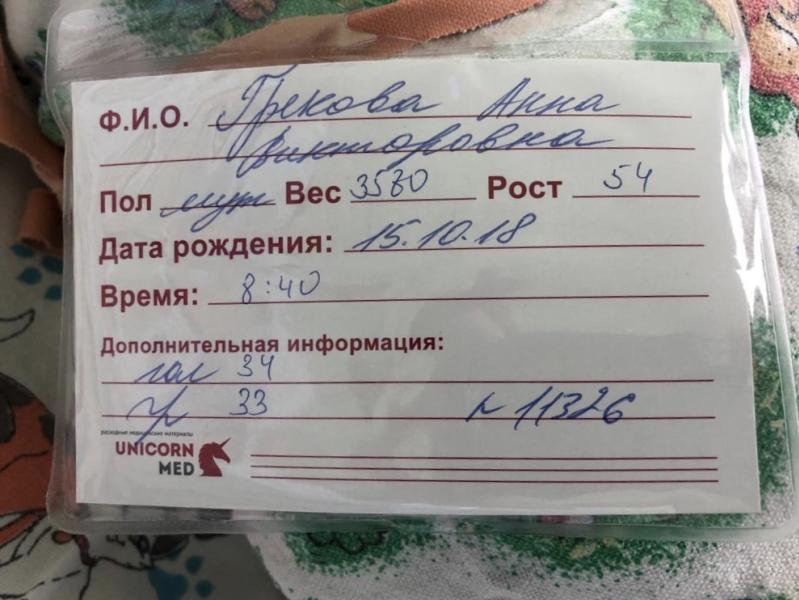 Ф.И.О. Грекова Анна
Викторовна
Пол муж Вес 3580 Рост 54
Дата рождения: 15.10.18
Время: 8:40
Дополнительная информация:
гол 34
гр 33 № 11326
расходные медицинские материалы
UNICORN
MED